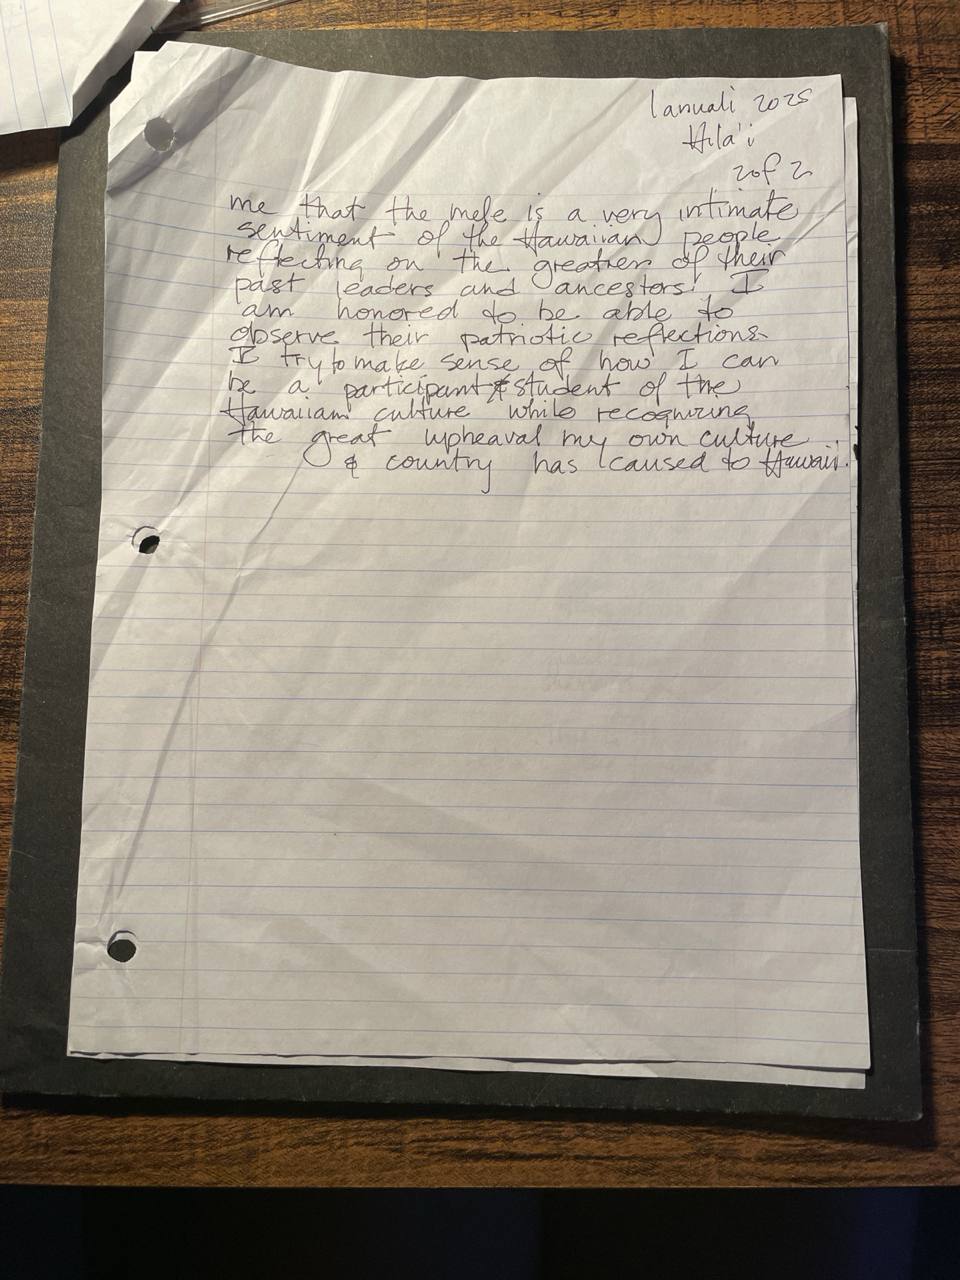 Ianuali 2025
Hila'i
2 of 2
me that the mele is a very intimate
sentiment of the Hawaiian people
reflecting on the greatnes of their
past leaders and ancestors. I
am honored to be able to
observe their patriotic reflections.
I try to make sense of how I can
be a participant & student of the
Hawaiian culture while recognizing
the great upheaval my own culture
& country has caused to Hawaii.